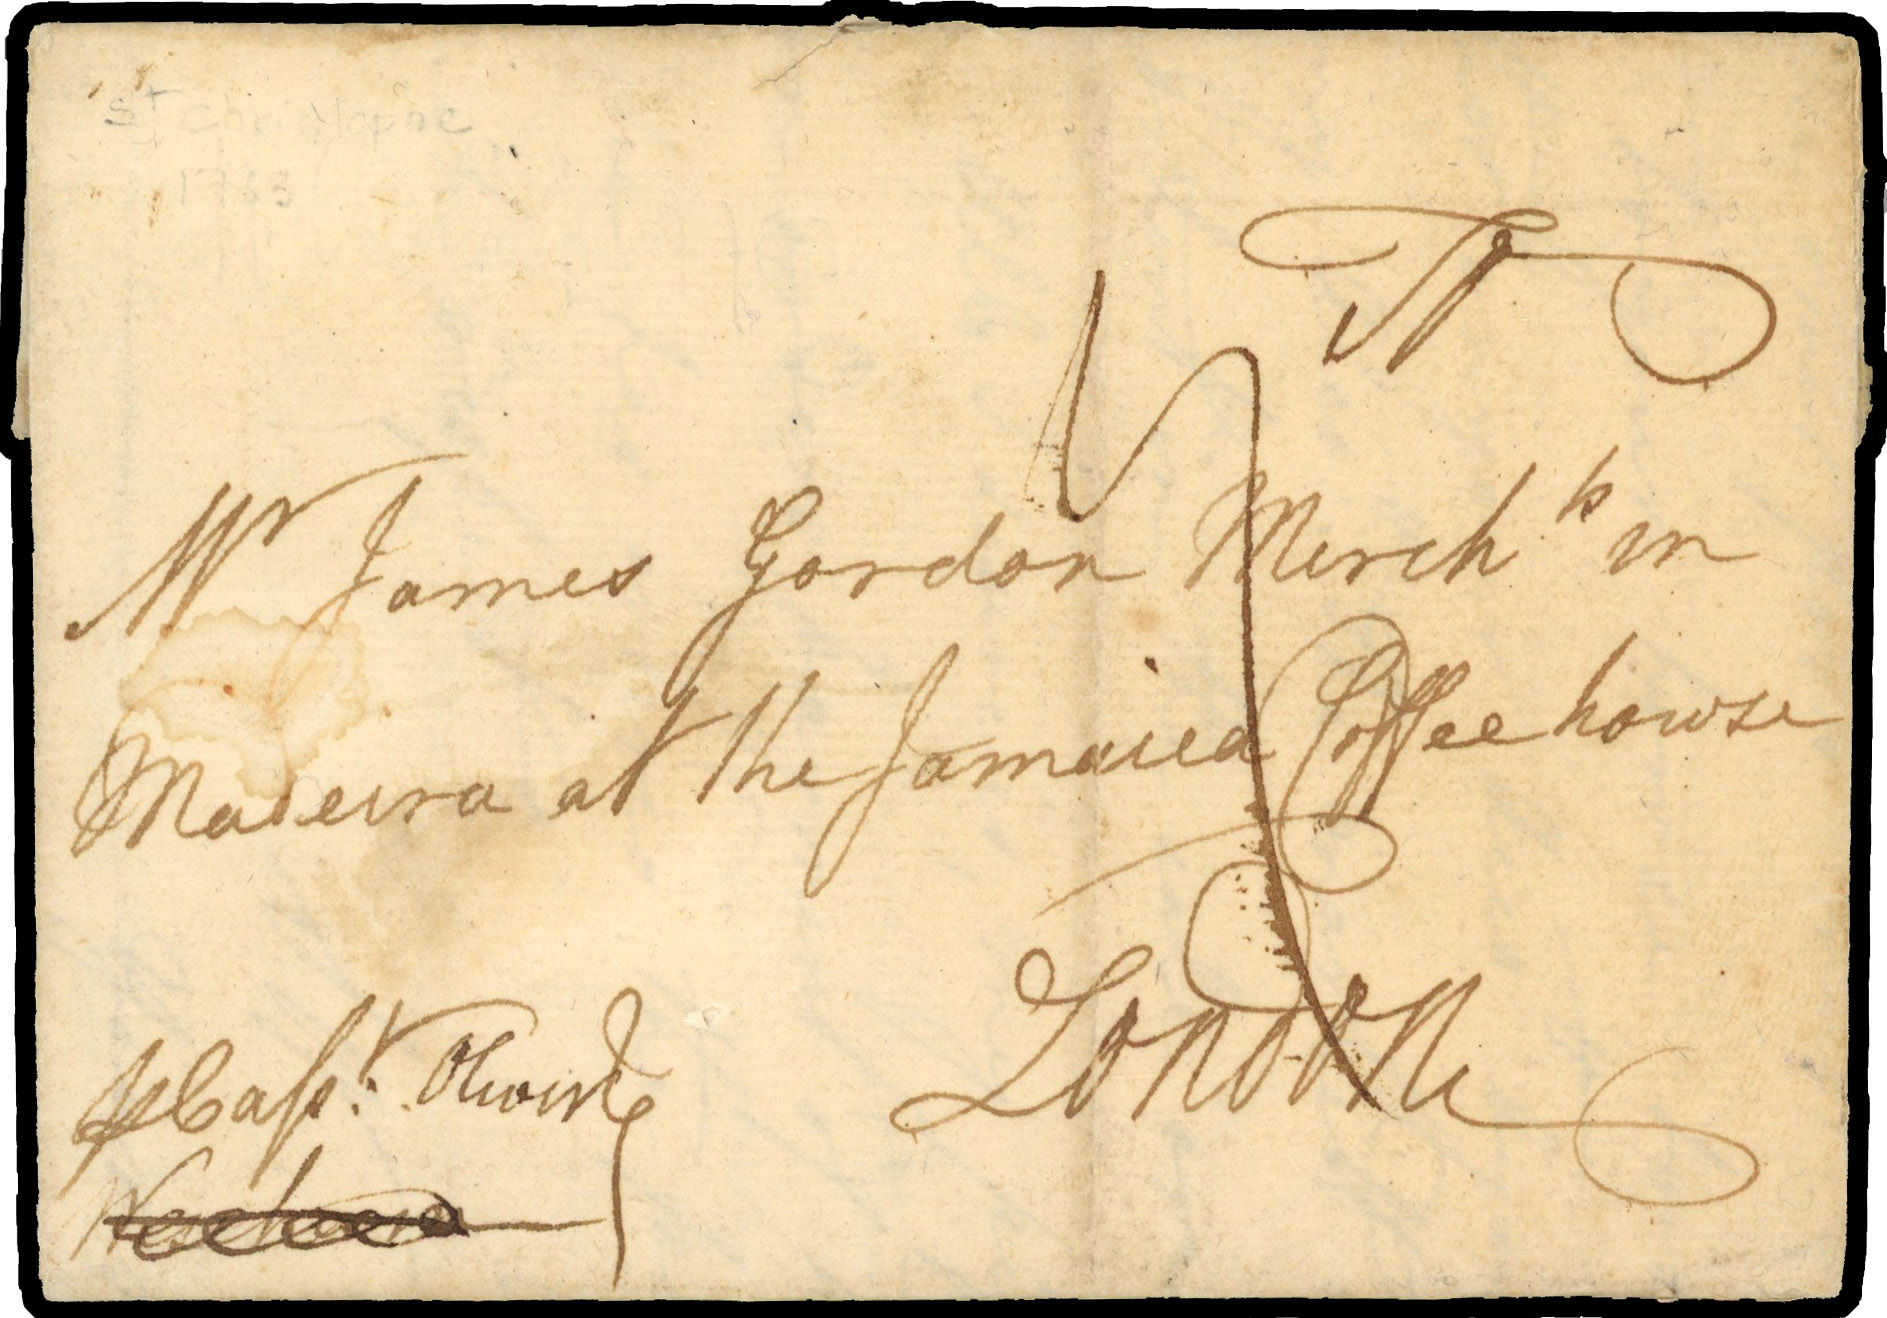 St Christophe
1763
To
Mr James Gordon Mercht in
Madeira at the Jamaica Coffee howse
London
p Capt.